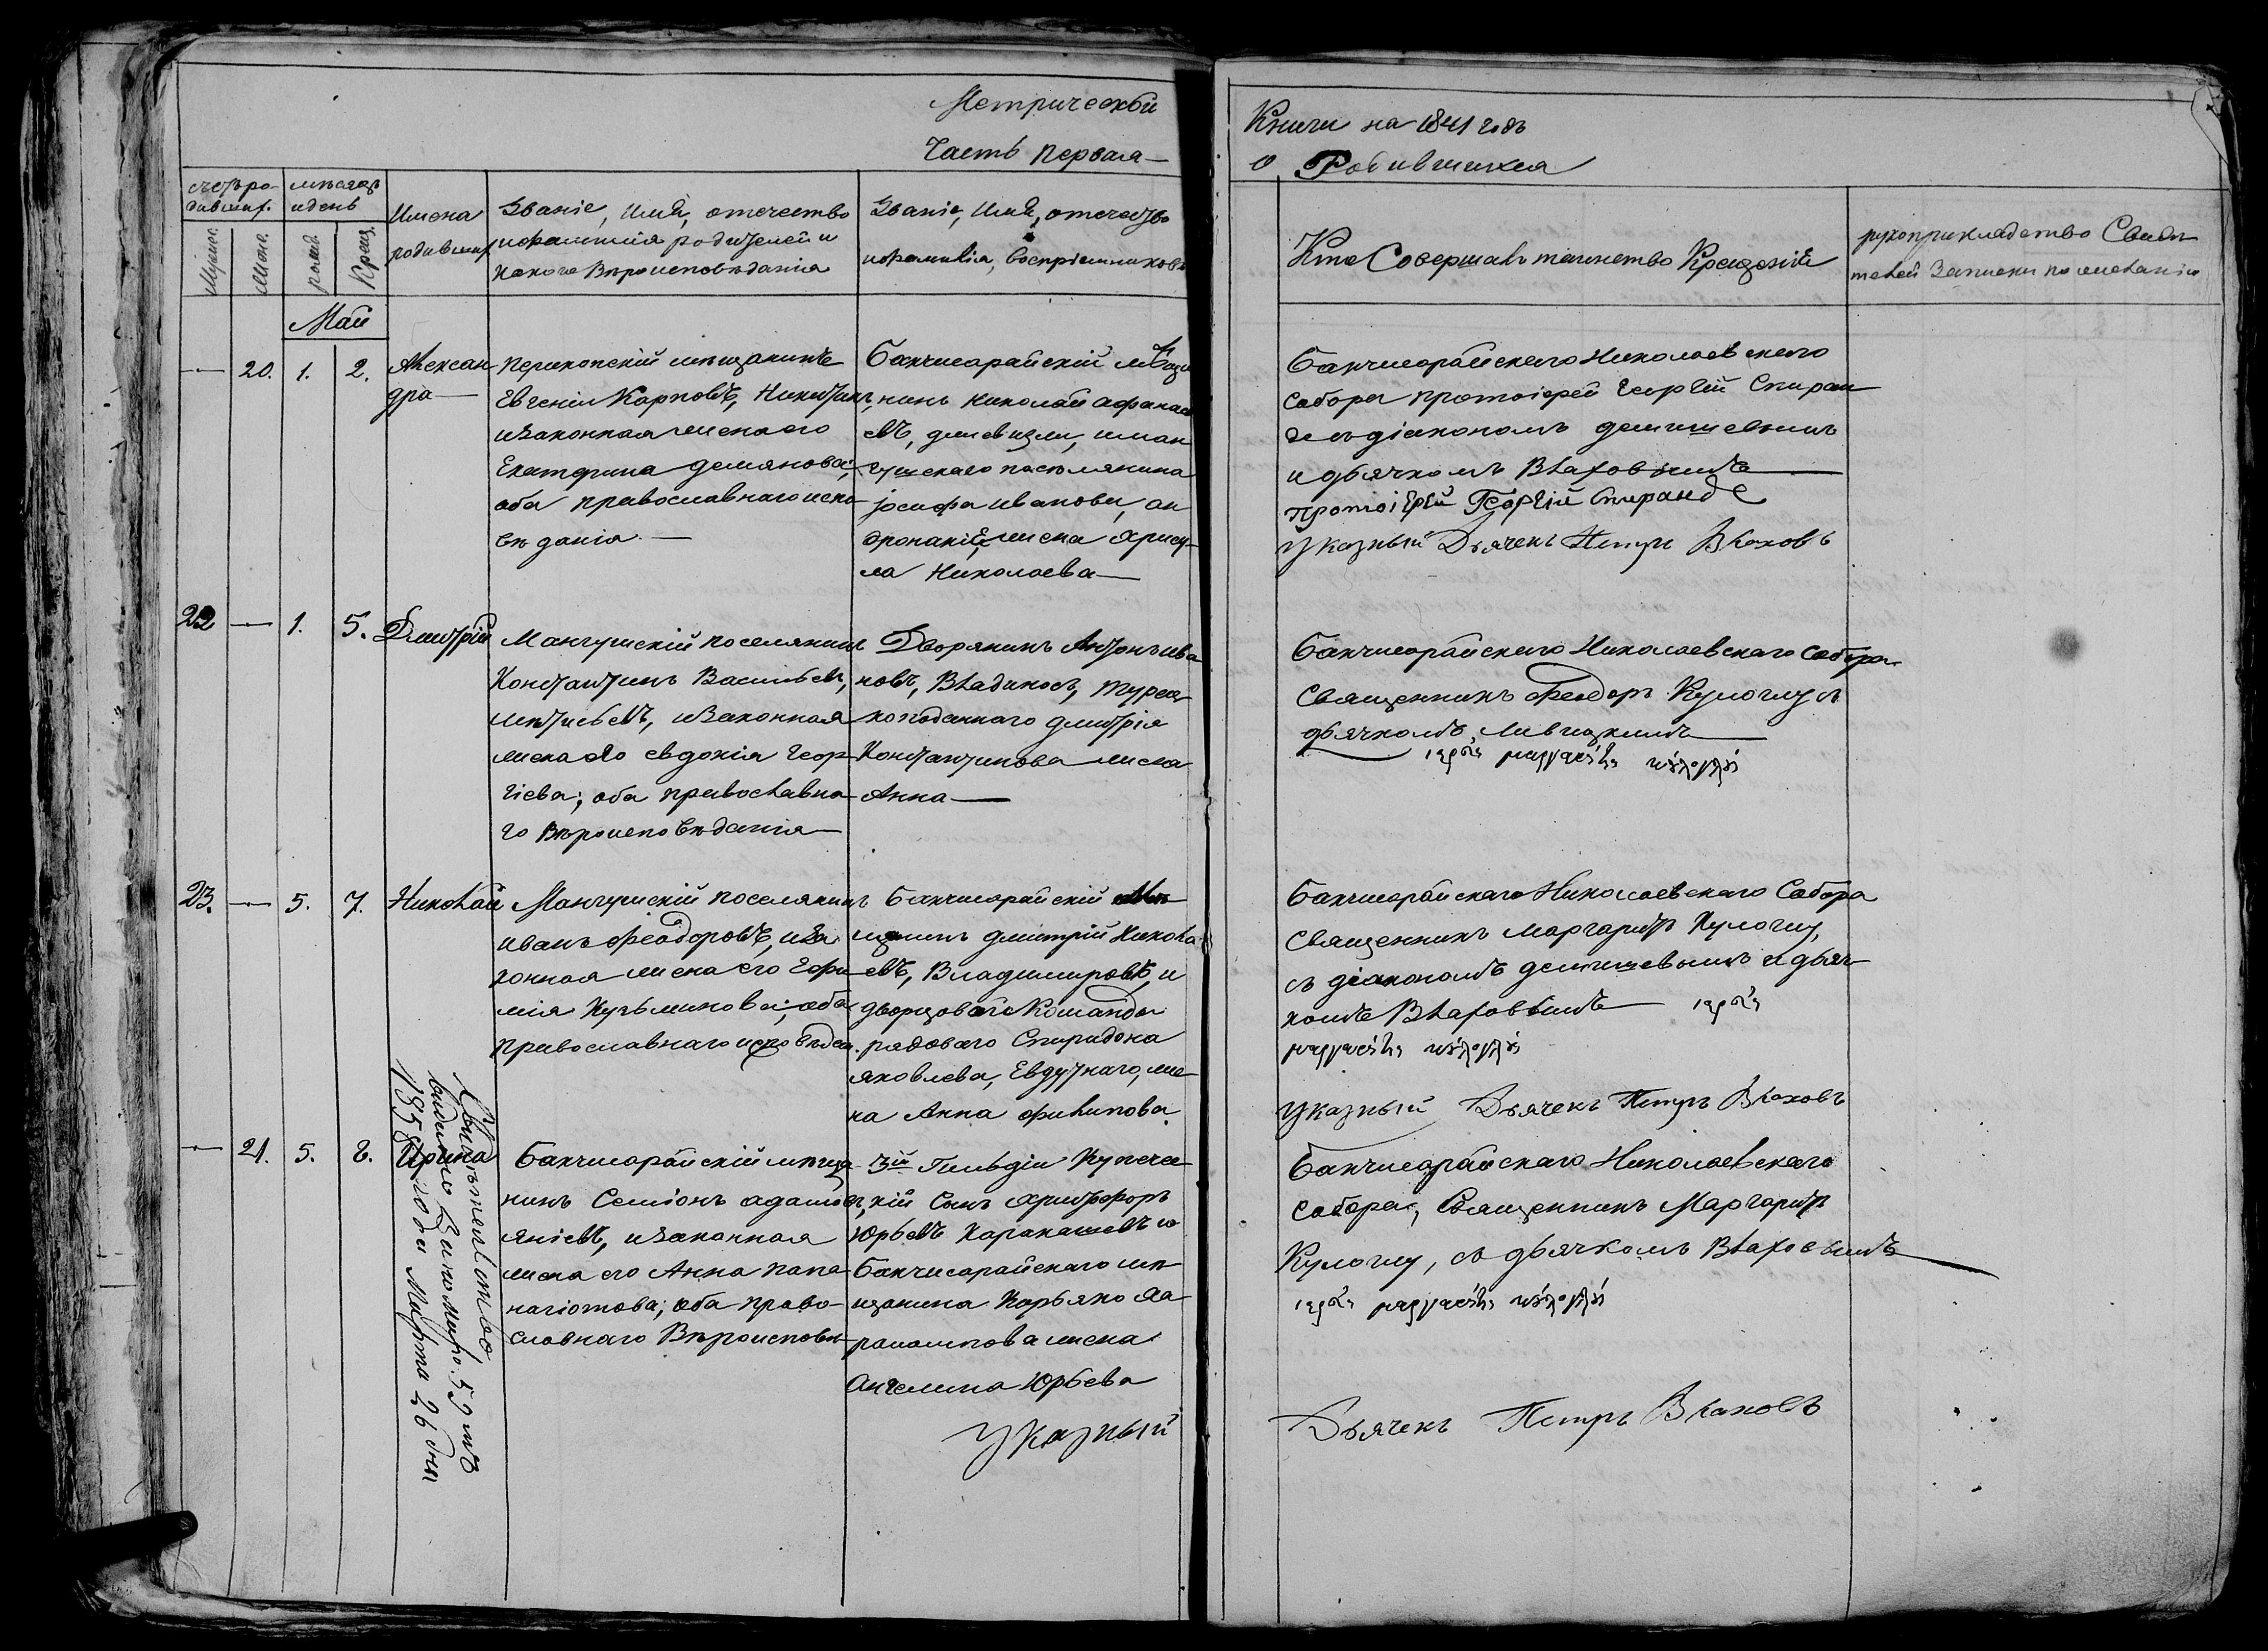 Метрической
Часть Первая
Книги на 1841 годъ
о Родившихся
мѣсяцъ
и день
Имена
родивших
Званіе, Имя, отчество
и фамилія родителей и
какого Вѣроисповѣданія
Званіе, Имя, отчество
и фамилія, Воспріемниковъ
Кто Совершалъ таинство Крещенія
рукоприкладство Свидѣ
телей Записки по желанію
Май
20. 1. 2. Алексан
дра
Перекопскій мѣщанинъ
Евгеній Карповъ,
и законная жена его
Екатерина демянова;
оба православнаго испо
вѣданія.
Бакчисарайскій мѣща
нинъ Николай афанась
евъ,
поселянина
іосифа иванова, ан
жена Хрису
ла Николаева
Бакчисарайскаго Николаевскаго
Собора протоіерей Георгій Спиран
де съ діакономъ демишевымъ
и дьячкомъ Влаховымъ
Протоіерей Георгій Спиранде
Указный Дьячекъ Петръ Влаховъ
22 1. 5. Дмитрій
Мангушскій поселянинъ
Константинъ Васильевъ,
и законная
жена его евдокія Геор
гіева; оба православна
го Вѣроисповѣданія
Дворянинъ Антонъ ива
новъ, Владиносъ, турец
коподаннаго дмитрія
Константинова жена
Анна
Бакчисарайскаго Николаевскаго Собора
Священникъ Феодоръ Кулоглу съ
дьячкомъ, Ливицкимъ
23. 5. 7. Николай
Мангушскій поселянинъ
иванъ Феодоровъ, и за
конная жена его Ефи
мія Кузьминова; оба
православнаго исповѣдан.
Бакчисарайскій мѣ
щанинъ дмитрій Никола
евъ, Владимировъ, и
дворцовой Команды
рядоваго Спиридона
яковлева, же
на Анна филипова
Бакчисарайскаго Николаевскаго Собора
Священникъ Маргаритъ Кулоглу,
съ діакономъ демишевымъ и дьяч
комъ Влаховымъ
Указный Дьячекъ Петръ Влаховъ
21. 5. 8. Ирина
Свидѣтельство
видано 59
1858 года Марта 26 дня
Бакчисарайскій мѣща
нинъ Семіонъ адамов,
и законная
жена его Анна пана
гіотова; оба право
славнаго Вѣроисповѣ
3й Гильдіи Купече
кій Сынъ Христофоръ
Юрьевъ Каракашевъ и
Бакчисарайскаго мѣ
щанина Карьяко Ха
рлампова жена
Ангелина Юрьева
Бакчисарайскаго Николаевскаго
Собора, Священникъ Маргаритъ
Кулоглу, съ дьячкомъ Влаховымъ
Указный Дьячекъ Петръ Влаховъ